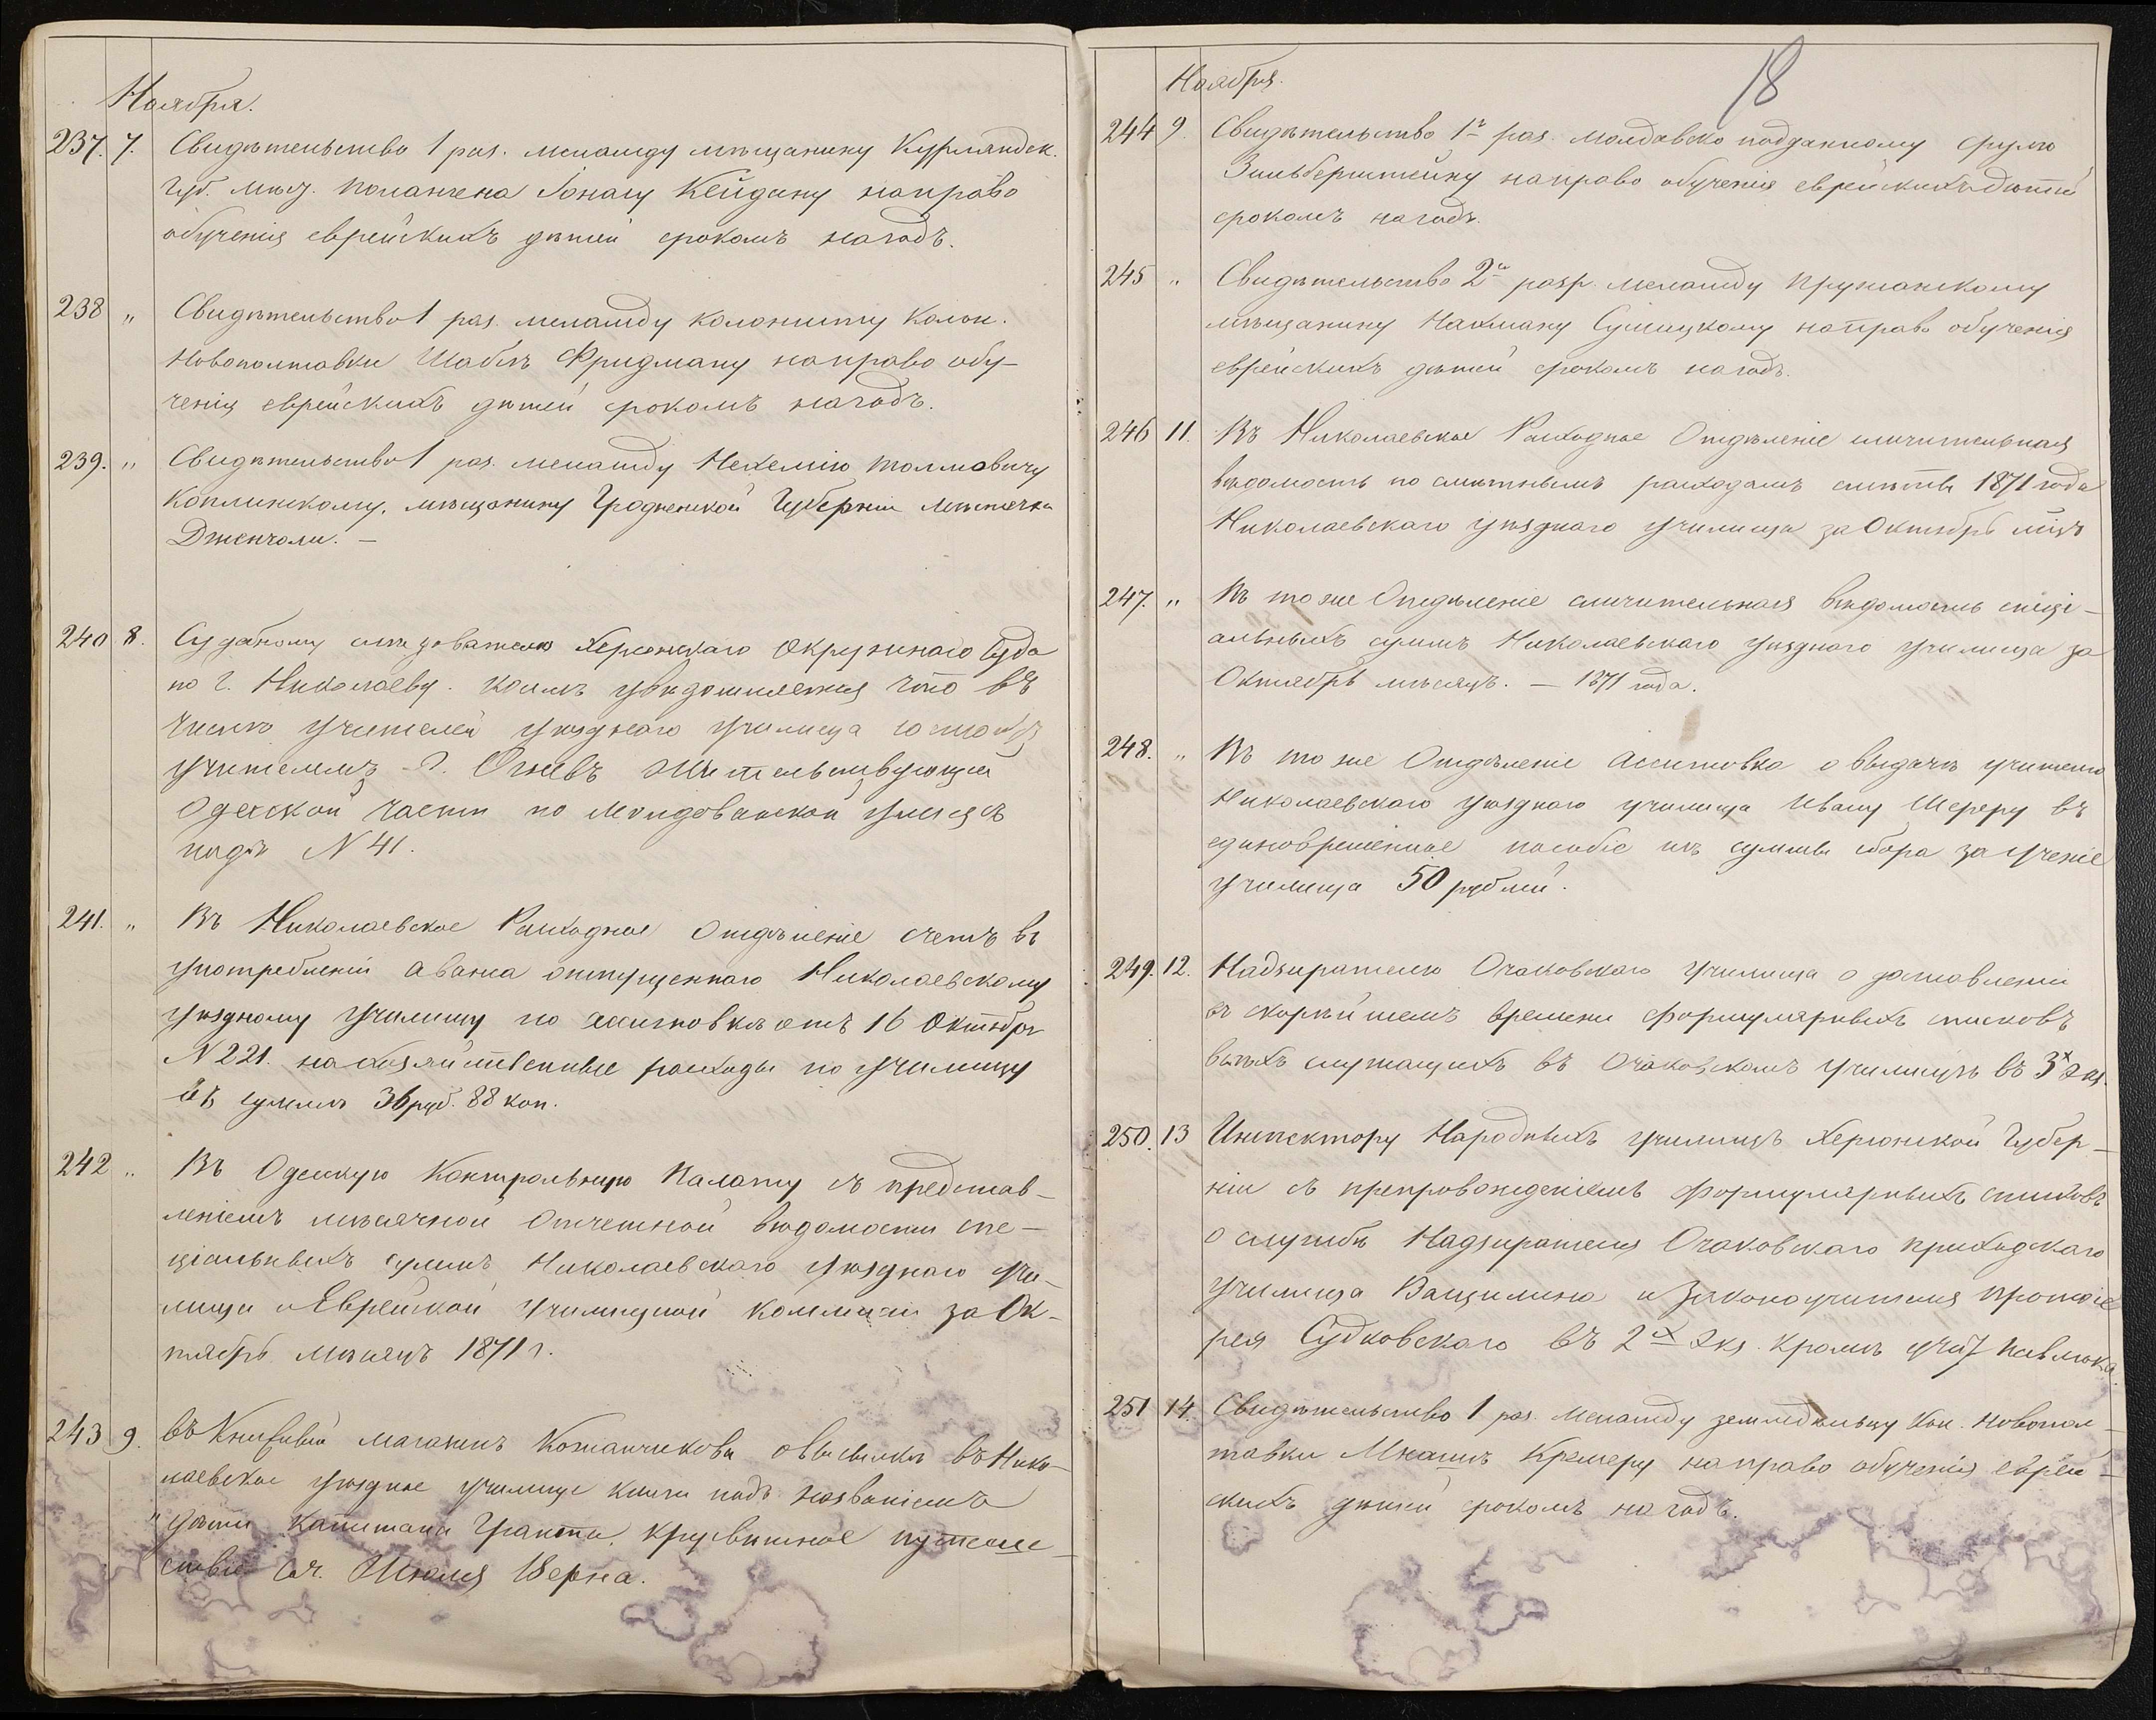 Ноября.
237. 7. Свидѣтельство 1 раз. меламду мѣщанину Курляндск.
Губ. мѣщ. Полангена Іонасу Кейдану направо
обученія еврейскихъ дѣтей срокомъ нагодъ.
238 „ Свидѣтельство 1 раз. меламду колонисту Колон.
Новополтавки Шабсѣ Фридману направо обу-
ченія еврейскихъ дѣтей срокомъ нагодъ.
239. „ Свидѣтельство 1 раз. меламду Нехемію
мѣщанину Гродненской Губерніи мѣстечка
240 8. Судебному слѣдователю Херсонскаго Окружнаго Суда
по г. Николаеву. коимъ увѣдомляется что въ
числѣ учителей уѣзднаго училища состоитъ
учителемъ г. Огневъ жительствующій
Одесской части по Молдованской улицѣ
подъ N 41.
241. „ Въ Николаевское Расходное Отдѣленіе счетъ въ
употребленіи аванса отпущеннаго Николаевскому
уѣздному училищу по ассигновкѣ отъ 16 Октября
N 221. на хозяйственные расходы по училищу
въ суммѣ 36 руб. 88 коп.
242 „ Въ Одесскую Контрольную Палату съ представ-
леніемъ мѣсячной отчетной вѣдомости спе-
ціальныхъ суммъ Николаевскаго уѣзднаго учи-
лища и Еврейской училищной коммисіи за Ок-
тябрь мѣсяцъ 1871 г.
243 9. въ Книжный магазинъ Кожанчикова о высылкѣ въ Нико-
лаевское уѣздное училище книги подъ названіемъ
„дѣти капитана Гранта, кругосвѣтное путеше-
ствіе соч. Жюля Верна.
18
Ноября.
244 9. Свидѣтельство 1го раз. молдавско подданному Срулю
Зильберштейну направо обученія еврейскихъ дѣтей
срокомъ нагодъ.
245 „ Свидѣтельство 2го разр. меламду Пружанскому
мѣщанину Нахману направо обученія
еврейскихъ дѣтей срокомъ нагодъ.
246 11. Въ Николаевское Расходное Отдѣленіе сличительная
вѣдомость по смѣтнымъ расходамъ смѣты 1871 года
Николаевскаго уѣзднаго училища за Октябрь мѣц
247. „ Въ тоже Отдѣленіе сличительная вѣдомость спеці-
альныхъ суммъ Николаевскаго уѣзднаго училища за
Октябрь мѣсяцъ. — 1871 года.
248. „ Въ тоже Отдѣленіе Ассигновка о выдачѣ учителю
Николаевскаго уѣзднаго училища Ивану Шереру въ
единовременное пособіе изъ суммы сбора за ученіе
училища 50 рублей.
249. 12. Надзирателю Очаковскаго училища о доставленіи
въ скорѣйшемъ времени формулярныхъ списковъ
всѣхъ служащихъ въ Очаковскомъ училищѣ въ 3х экз.
250. 13 Инспектору Народныхъ училищъ Херсонской Губер-
ніи съ препровожденіемъ формулярныхъ списковъ
о службѣ Надзирателя Очаковскаго приходскаго
училища и Законоучителя протоіе
рея Судковскаго въ 2х экз. кромѣ Павлюка
251 14. Свидѣтельство 1 раз. меламду земледѣльцу Кол. Новопол-
тавки Кремеру направо обученія еврей-
скихъ дѣтей срокомъ нагодъ.